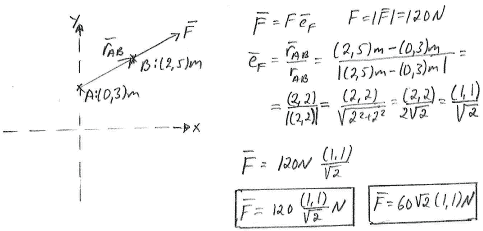 y
F̄
r̄_AB
B:(2,5)m
A:(0,3)m
x
F̄ = F ē_F F=|F̄|=120N
ē_F = r̄_AB / r_AB = ((2,5)m-(0,3)m) / |(2,5)m-(0,3)m| =
= (2,2) / |(2,2)| = (2,2) / √(2²+2²) = (2,2) / 2√2 = (1,1) / √2
F̄ = 120N (1,1)/√2
F̄ = 120 (1,1)/√2 N F̄ = 60√2 (1,1)N